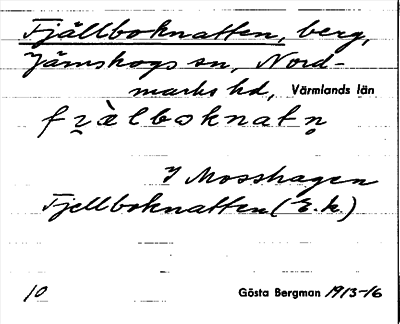 Fjällboknatten, berg,
Järnskogs sn, Nord-
marks hd, Värmlands län
I Mosshagen
Fjellboknatten (E.k.)
10 Gösta Bergman 1913-16